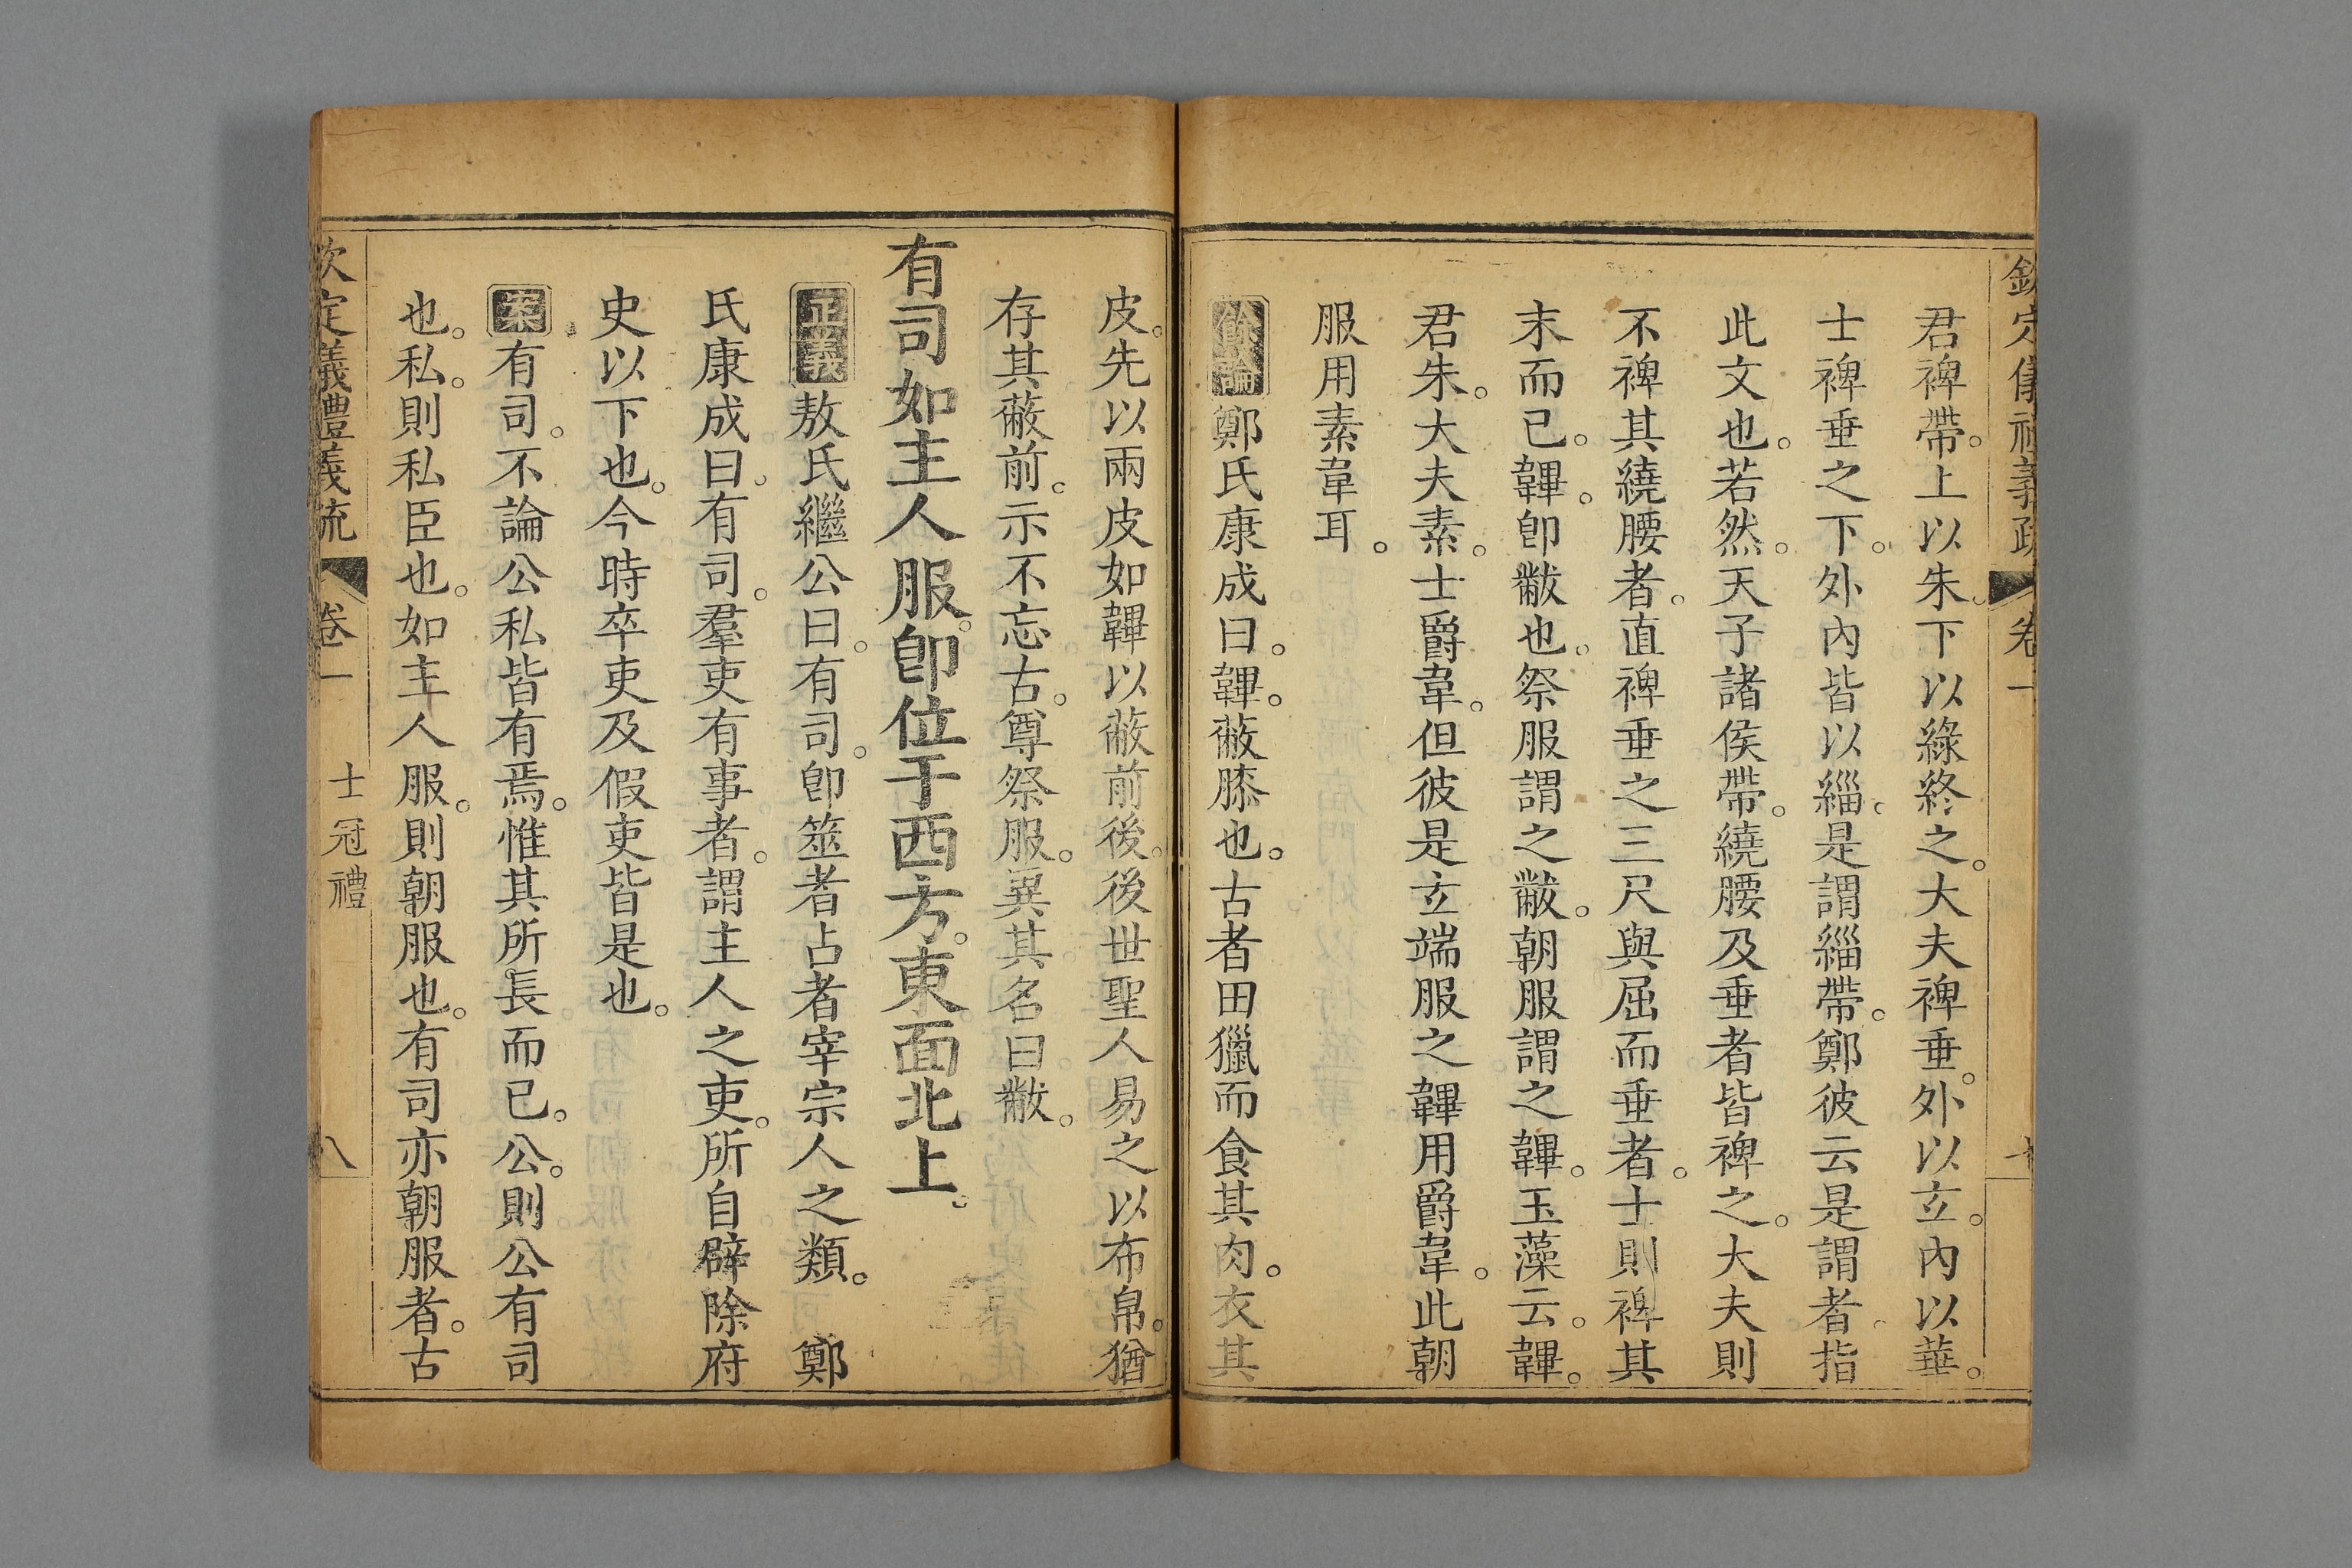 欽定儀禮義疏 卷一
君裨帶。上以朱。下以綠終之。大夫裨垂。外以玄。內以華。
士裨垂之下。外內皆以緇。是謂緇帶。鄭彼云是謂者指
此文也。若然。天子諸侯帶。繞腰及垂者皆裨之。大夫則
不裨其繞腰者。直裨垂之三尺與屈而垂者。士則裨其
末而已。韠。卽黻也。祭服謂之黻。朝服謂之韠。玉藻云。韠。
君朱。大夫素。士爵韋。但彼是玄端服之韠用爵韋。此朝
服用素韋耳。
餘論鄭氏康成曰。韠。蔽膝也。古者田獵而食其肉。衣其
皮。先以兩皮如韠以蔽前後。後世聖人易之以布帛。猶
存其蔽前。示不忘古。尊祭服。異其名曰黻。
有司如主人服。卽位于西方。東面北上。
正義敖氏繼公曰。有司。卽筮者占者宰宗人之類。 鄭
氏康成曰。有司。羣吏有事者。謂主人之吏。所自辟除府
史以下也。今時卒吏及假吏皆是也。
案有司。不論公私皆有焉。惟其所長而已。公。則公有司
也。私。則私臣也。如主人服。則朝服也。有司亦朝服者。古
欽定儀禮義疏 卷一 士冠禮 八